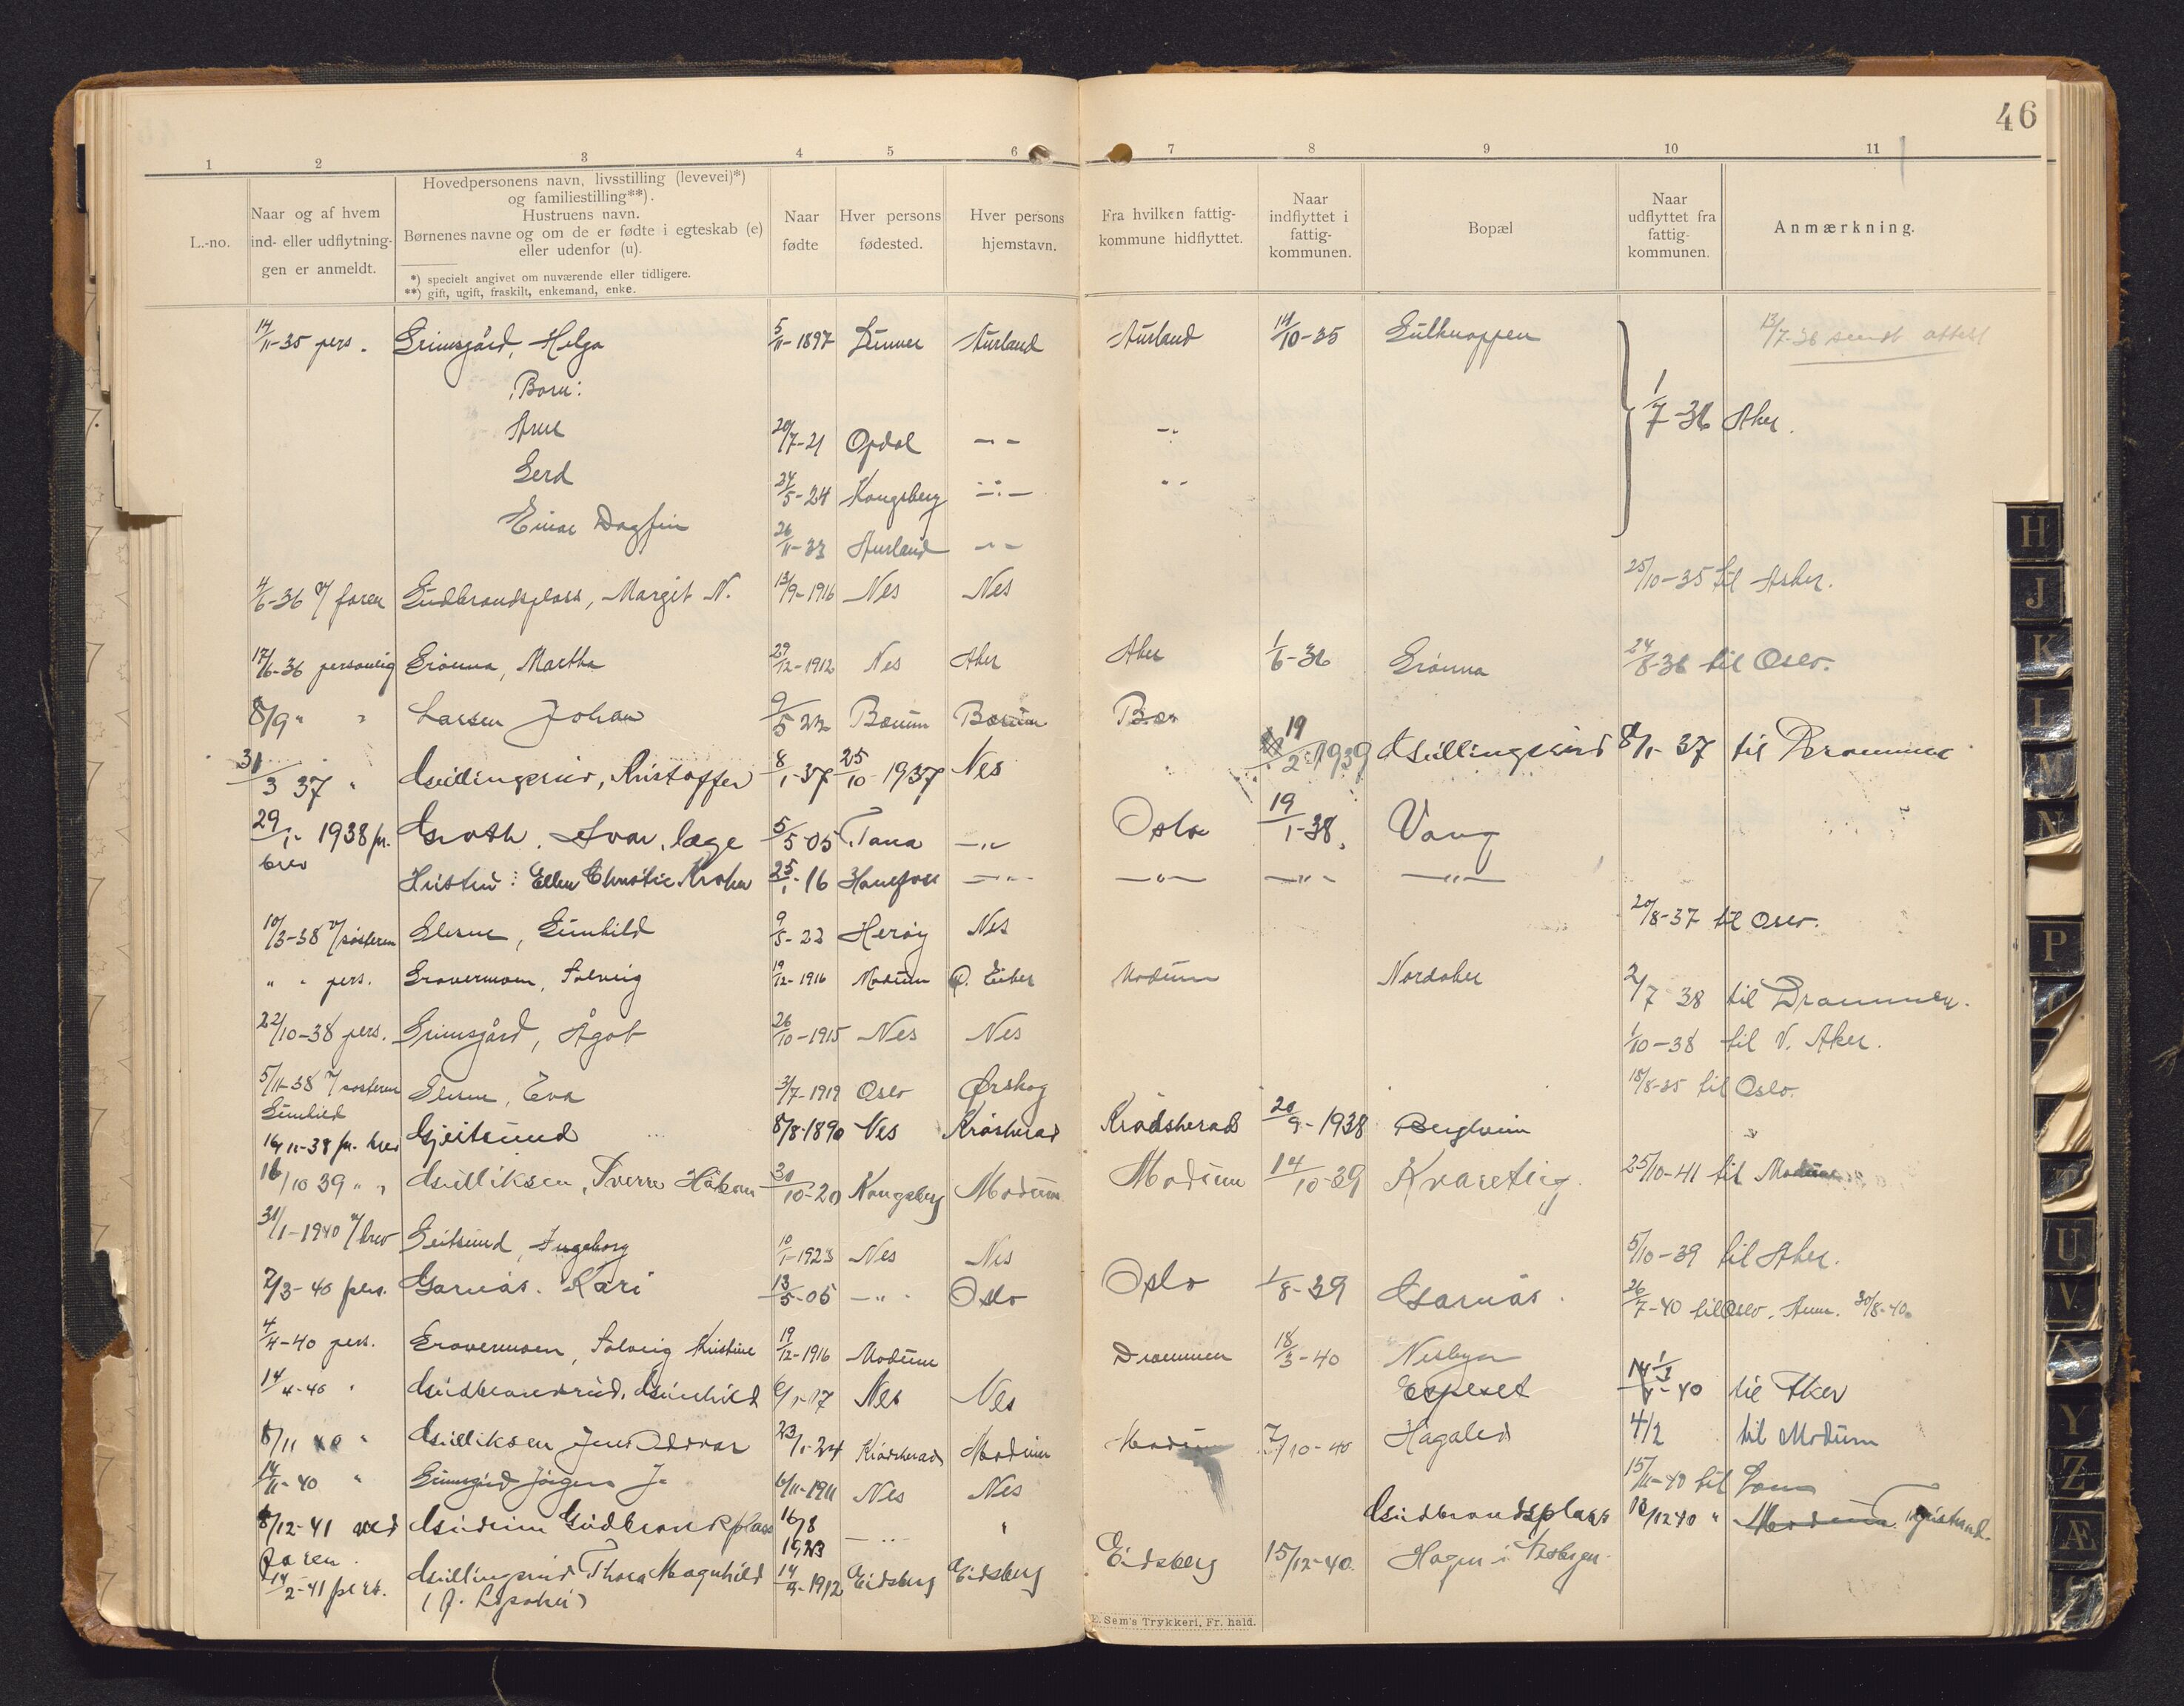 46
1 2 3 4 5 6 7 8 9 10 11
L.-no.
Naar og af hvem
ind- eller udflytnin-
gen er anmeldt.
Hovedpersonens navn, livsstilling (levevei)*)
og familiestilling**).
Hustruens navn.
Børnenes navne og om de er fødte i egteskab (e)
eller udenfor (u).
*) specielt angivet om nuværende eller tidligere.
**) gift, ugift, fraskilt, enkemand, enke.
Naar
fødte
Hver persons
fødested.
Hver persons
hjemstavn.
Fra hvilken fattig-
kommune hidflyttet.
Naar
indflyttet i
fattig-
kommunen.
Bopæl
Naar
udflyttet fra
fattig-
kommunen.
Anmærkning.
14/11-35 pers. Grimsgård, Helga 5/11-1897 Lunner Aurland Aurland 14/10-35 Gulknappen 13/7-36 sendt attest
Barn:
Arne 20/7-21 Opdal -"- -"- 1/7-36 Aker.
Gerd 24/5-24 Kongsberg -"- -"-
Einar Dagfin 26/11-33 Aurland -"-
4/6-36 v/ faren Gudbrandsplass, Margit N. 13/9-1916 Nes Nes 25/10-35 til Asker.
17/6-36 personlig Grønna, Martha 29/12-1912 Nes Aker Aker 1/6-36 Grønna 24/8-36 til Oslo.
8/9 " " Larsen Johan 9/5 22 Bærum Bærum Bær
31/3 37 " Gullingsrud, Kristoffer 8/1-37 25/10-1937 Nes 19/2-1939 Gullingsrud 8/1-37 til Drammen
29/1-1938 pr. Groth, Ivar, læge 5/5-05 Tana -"- Oslo 19/1-38. Vang
brev
Hustru: Ellen Christie Krohn 25/1-16 Hønefoss -"- -"- -"- -"-
10/3-38 v/søsteren Glesne, Gunhild 9/5-23 Herøy Nes 20/8-37 til Oslo.
" " pers. Gravermoen, Solveig 19/12-1916 Modum Ø. Eiker Modum Nordaker 2/7 38 til Drammen.
22/10-38 pers. Grimsgård, Ågot 26/10-1915 Nes Nes 1/10-38 til V. Aker.
5/11-38 v/søsteren Glesne, Eva 3/7-1919 Oslo Ørskog 18/8-35 til Oslo.
Gunhild
16/11-38 pr. brev Gjeitsund 8/8-1890 Nes Krødsherad Krødsherad 20/9-1938 Bergheim
16/10 39 " " Gulliksen, Sverre Håkon 30/10-20 Kongsberg Modum Modum 14/10-39 25/10-41 til Modum
31/1-1940 v/brev Geitsund, Ingeborg 10/1-1923 Nes Nes 5/10-39 til Aker.
7/3-40 pers. Garnås. Kari 13/5-05 -"- Oslo Oslo 1/8-39 Garnås. 26/7-40 til Oslo. Anm. 30/8-40.
4/4-40 pers. Gravermoen, Solveig Kristine 19/12-1916 Modum Drammen 18/3-40 Nesbyen
14/4-40 " Gudbrandsrud, Gunhild 6/1-17 Nes Nes Espeset 1/4-40 til Aker
8/11 40 " Gulliksen Jens Oddvar 23/1-24 Krødsherad Modum Modum 7/10-40 Hagaled 4/2 til Modum
14/11-40 " Grimsgård Jørgen J. 6/11-1911 Nes Nes 15/11-40 til
8/12-41 ved Gudrun Gudbrandsplass 16/8 -"- " Gudbrandsplass 12/12 40 " Modum
faren. 1923
14/2-41 pers. Gullingsrud Thora Magnhild 14/9-1912 Eidsberg Eidsberg Eidsberg 15/12-40 Hagen i Nesbyen
E. Sem's Trykkeri, Fr. hald.
H
J
K
L
M
N
P
T
U
V
X
Y
Z
Æ